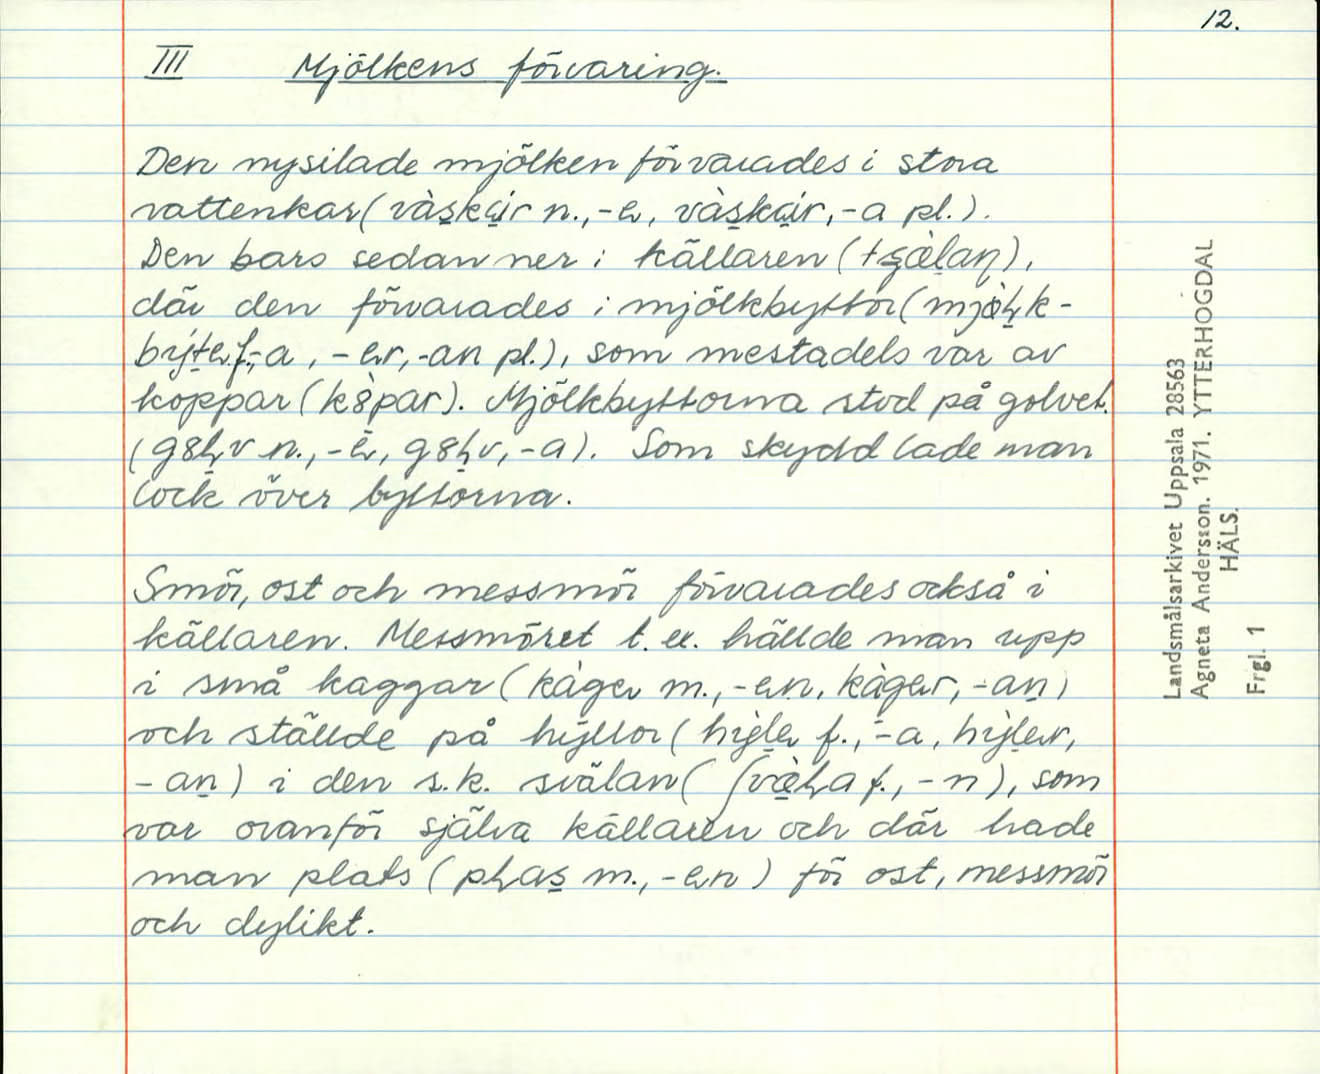 12.
III Mjölkens förvaring.
Den nysilade mjölken förvarades i stora
vattenkar (vàskáir n., -ə, vàskáir, -a pl.).
Den bars sedan ner i källaren
där den förvarades i mjölkbyttor
-a, -ər, -an pl.), som mestadels var av
koppar (kòpar). Mjölkbyttorna stod på golvet.
Som skydd lade man
lock över byttorna.
Smör, ost och messmör förvarades också i
källaren. Messmöret t.ex. hällde man upp
i små kaggar (kàgə m., -ən, kàgər, -an)
och ställde på hyllor
-an) i den s.k. svälan som
var ovanför själva källaren och där hade
man plats för ost, messmör
och dylikt.
Landsmålsarkivet Uppsala 28563
Agneta Andersson. 1971. YTTERHOGDAL
HÄLS.
Frgl. 1